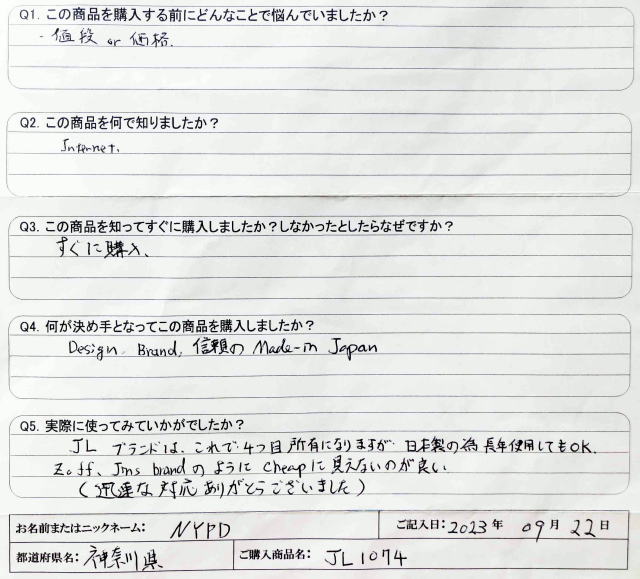 Q1. この商品を購入する前にどんなことで悩んでいましたか？
・値段 or 価格.
Q2. この商品を何で知りましたか？
Internet.
Q3. この商品を知ってすぐに購入しましたか？しなかったとしたらなぜですか？
すぐに購入、
Q4. 何が決め手となってこの商品を購入しましたか？
Design, Brand, 信頼の Made-in Japan
Q5. 実際に使ってみていかがでしたか？
JL ブランドは、これで4つ目所有になりますが 日本製の為 長年使用してもOK.
Zoff、Jins brandのように cheapに見えないのが良い
(迅速な対応ありがとうございました)
お名前またはニックネーム: NYPD ご記入日:2023年 09月 22日
都道府県名: 神奈川県 ご購入商品名: JL1074